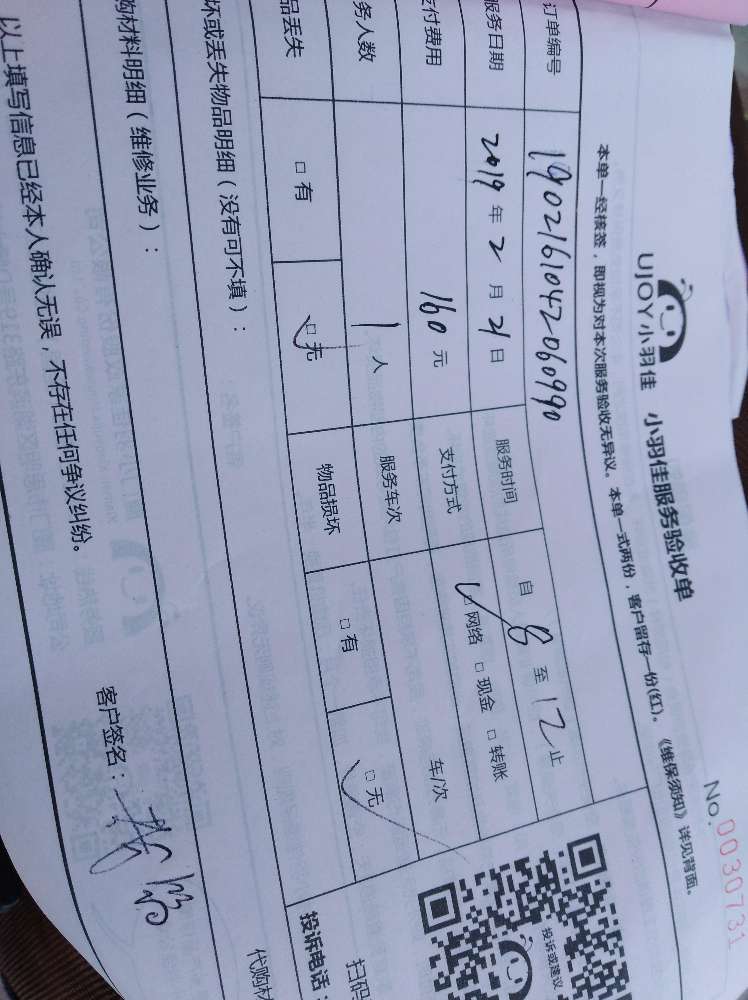 No.0030731
UJOY小羽佳 小羽佳服务验收单
本单一经核签，即视为对本次服务验收无异议。本单一式两份，客户留存一份(红)。《维保须知》详见背面。
订单编号 1902161042060990
服务日期 2019年2月21日 服务时间 自8至12止
支付费用 160元 支付方式 □网络 □现金 □转账
务人数 1人 服务车次 车/次
品丢失 □有 □无 物品损坏 □有 □无
坏或丢失物品明细（没有可不填）：
购材料明细（维修业务）： 代购材
以上填写信息已经本人确认无误，不存在任何争议纠纷。
客户签名：
投诉或建议
扫码
投诉电话：